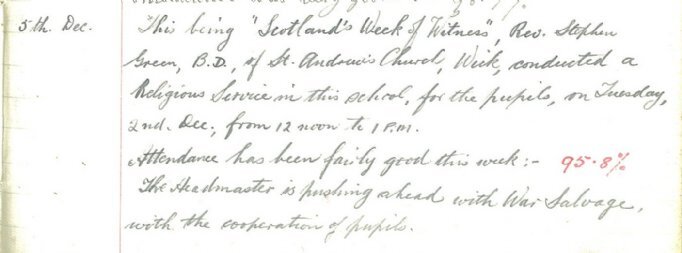 5th. Dec. This being "Scotland's Week of Witness", Rev. Stephen
Green, B.D., of St. Andrew's Church, Wick, conducted a
Religious Service in this school, for the pupils, on Tuesday,
2nd. Dec., from 12 noon to 1 P.M.
Attendance has been fairly good this week:- 95.8%
The Headmaster is pushing ahead with War Salvage,
with the cooperation of pupils.